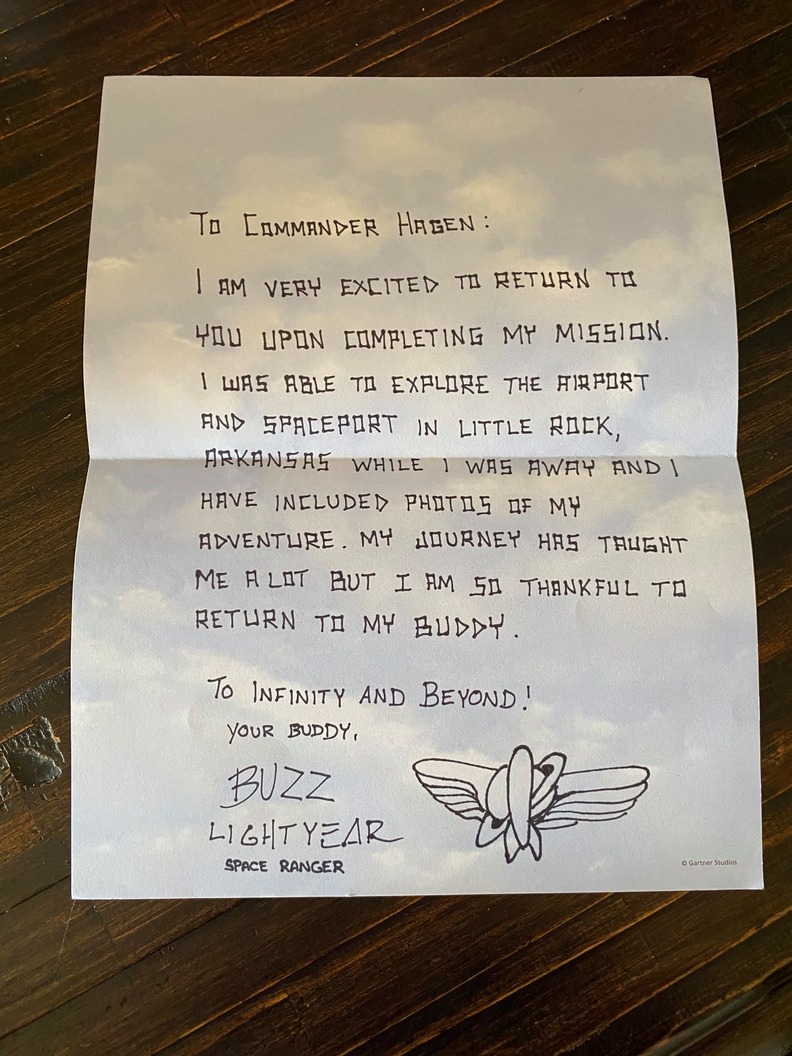 To Commander Hagen:
I am very excited to return to
you upon completing my mission.
I was able to explore the airport
and spaceport in Little Rock,
Arkansas while I was away and I
have included photos of my
adventure. My journey has taught
me a lot but I am so thankful to
return to my buddy.
To Infinity and Beyond!
your buddy,
BUZZ
LIGHTYEAR
SPACE RANGER
© Gartner Studios